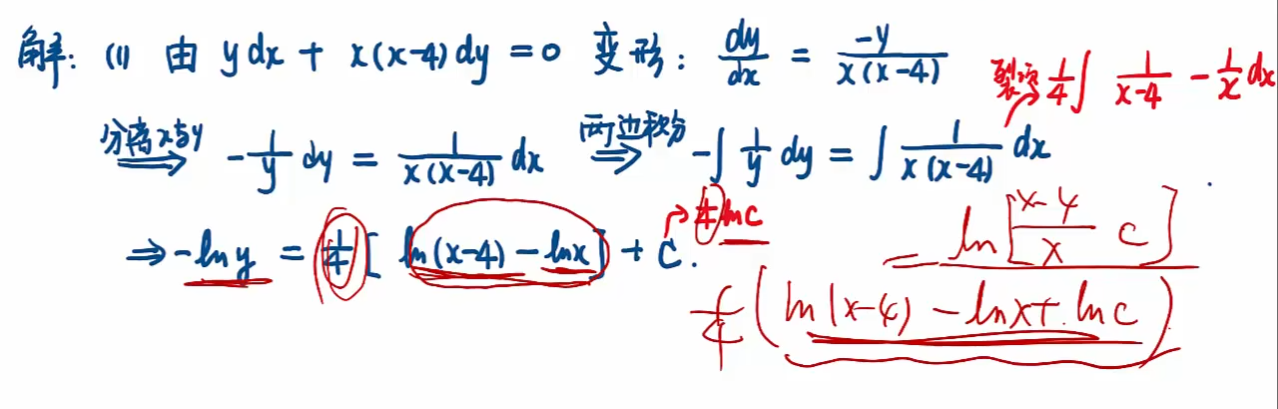 解: (1) 由 ydx + x(x-4)dy = 0 变形: dy/dx = -y/(x(x-4))
裂项 1/4∫ 1/(x-4) - 1/x dx
分离x与y ⇒ -1/y dy = 1/(x(x-4)) dx 两边积分 ⇒ -∫ 1/y dy = ∫ 1/(x(x-4)) dx
1/4 lnc
⇒ -ln y = 1/4 [ ln(x-4) - lnx ] + C.
= ln[ (x-4)/x C ]
1/4 ( ln(x-4) - lnx + lnc )